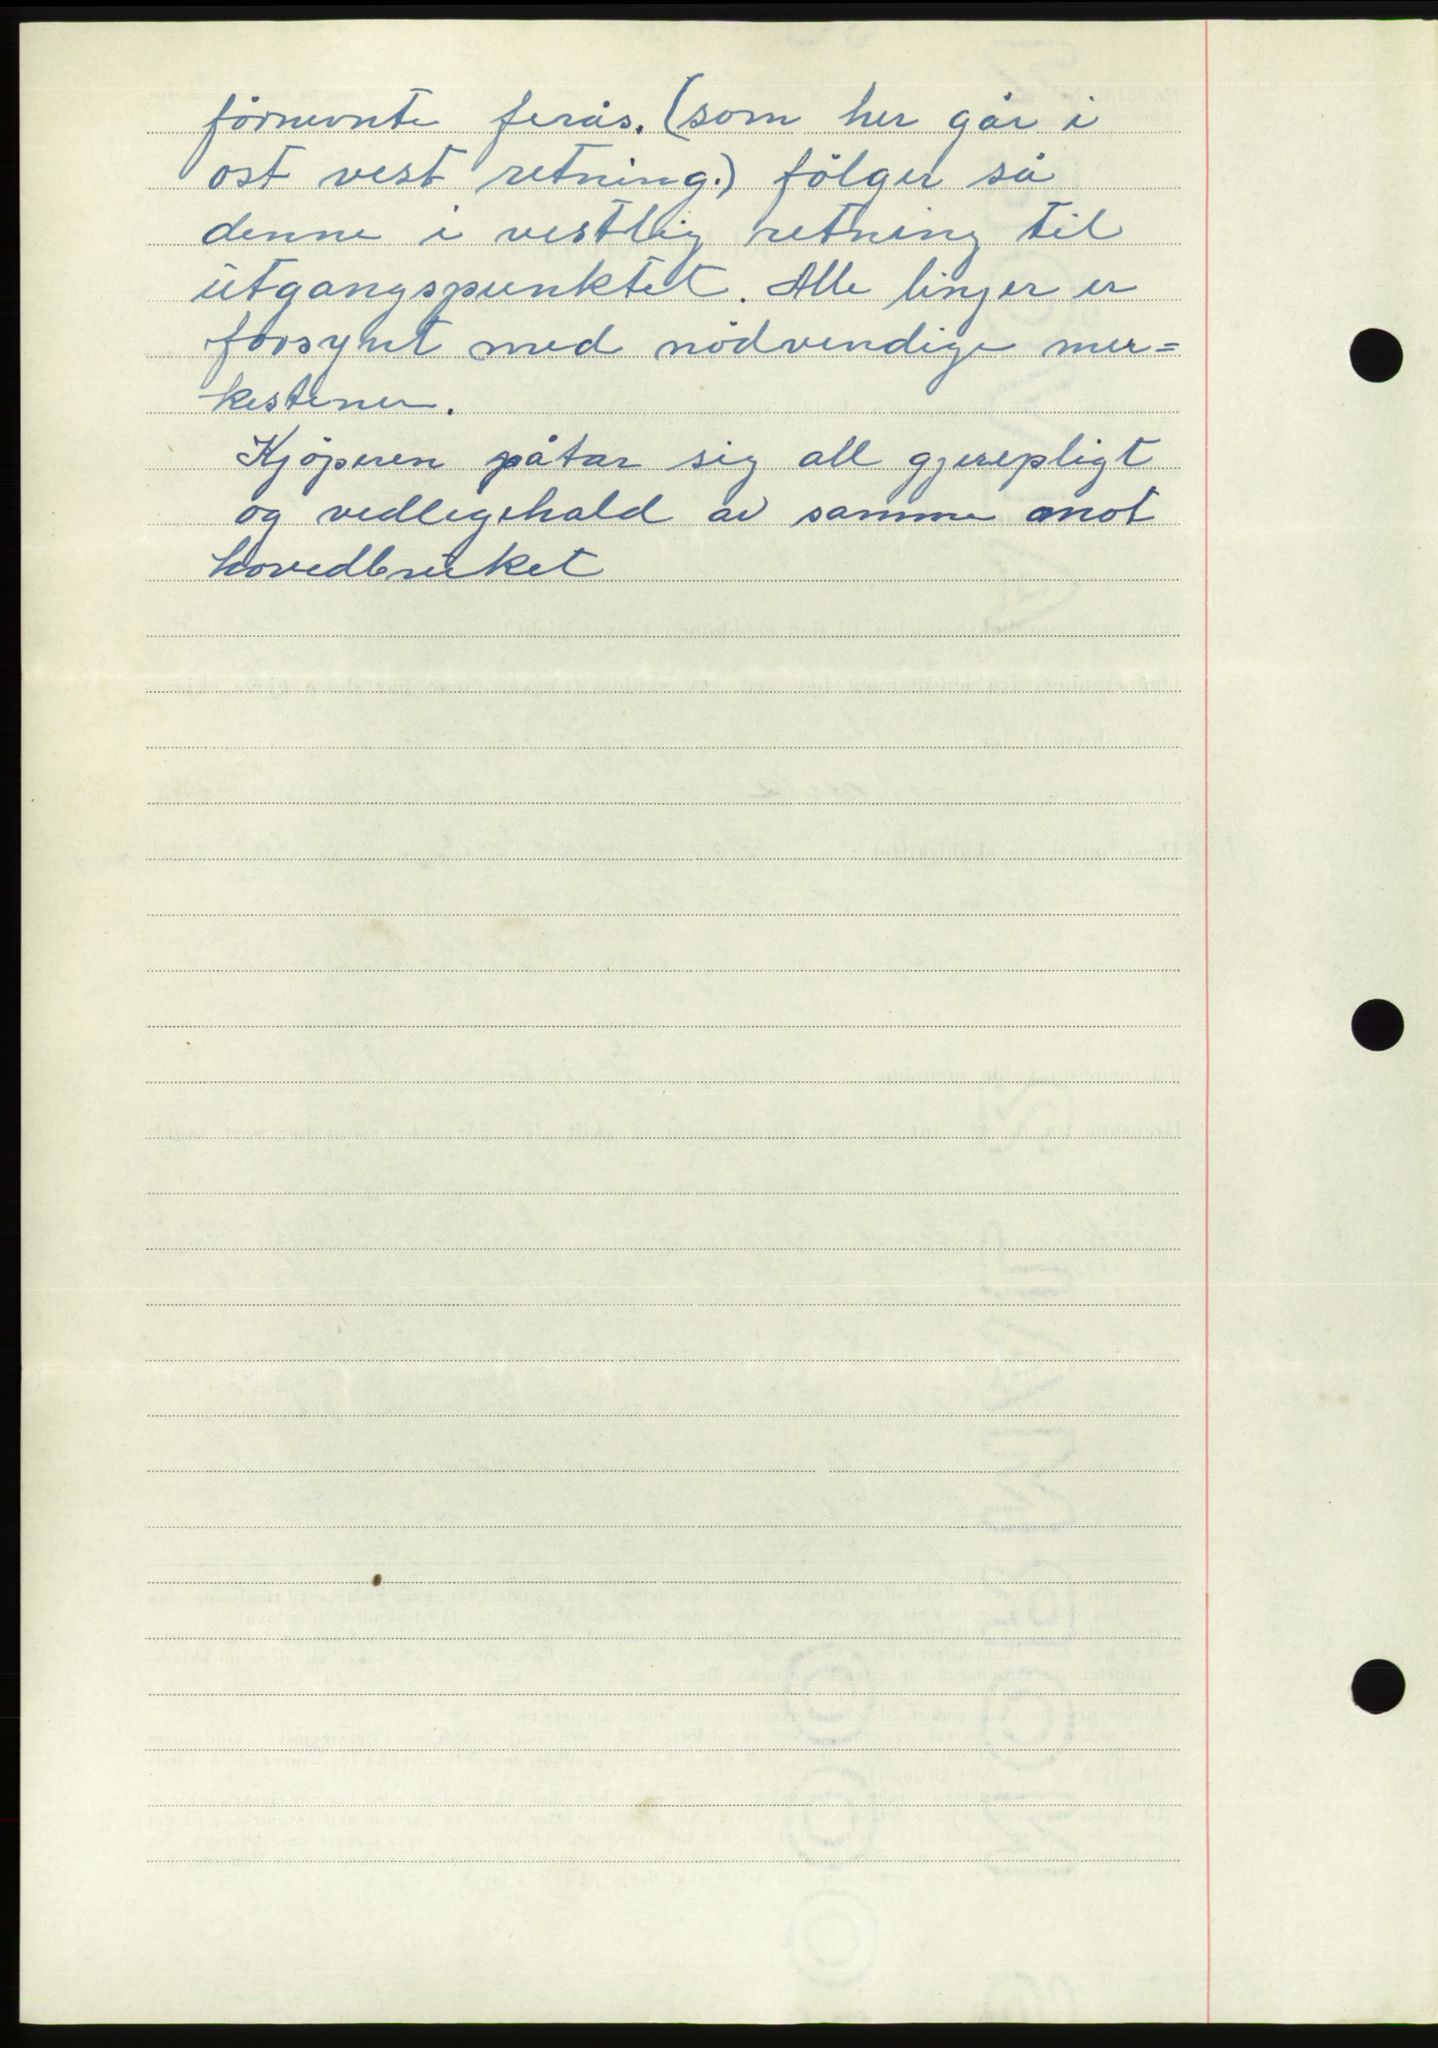 førnevnte ferås. (som her går i
ost vest retning.) følger så
denne i vestlig retning til
utgangspunktet. Alle linjer er
forsynt med nødvendige mer=
kestener.
Kjøperen påtar sig all gjerepligt
og vedligehald av samme mot
hovedbruket